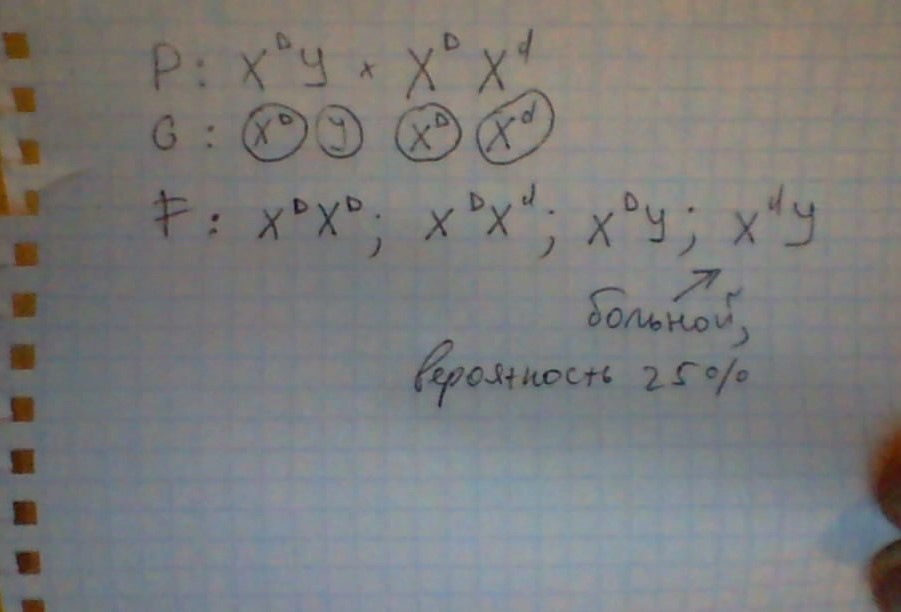 P: X^D Y × X^D X^d
G: X^D Y X^D X^d
F: X^D X^D; X^D X^d; X^D Y; X^d Y
больной,
вероятность 25%